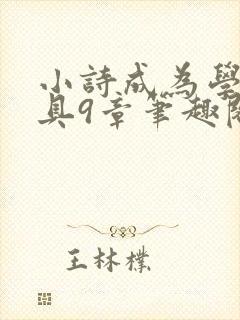 小詩成為學
具9章筆趣閱
王林樸